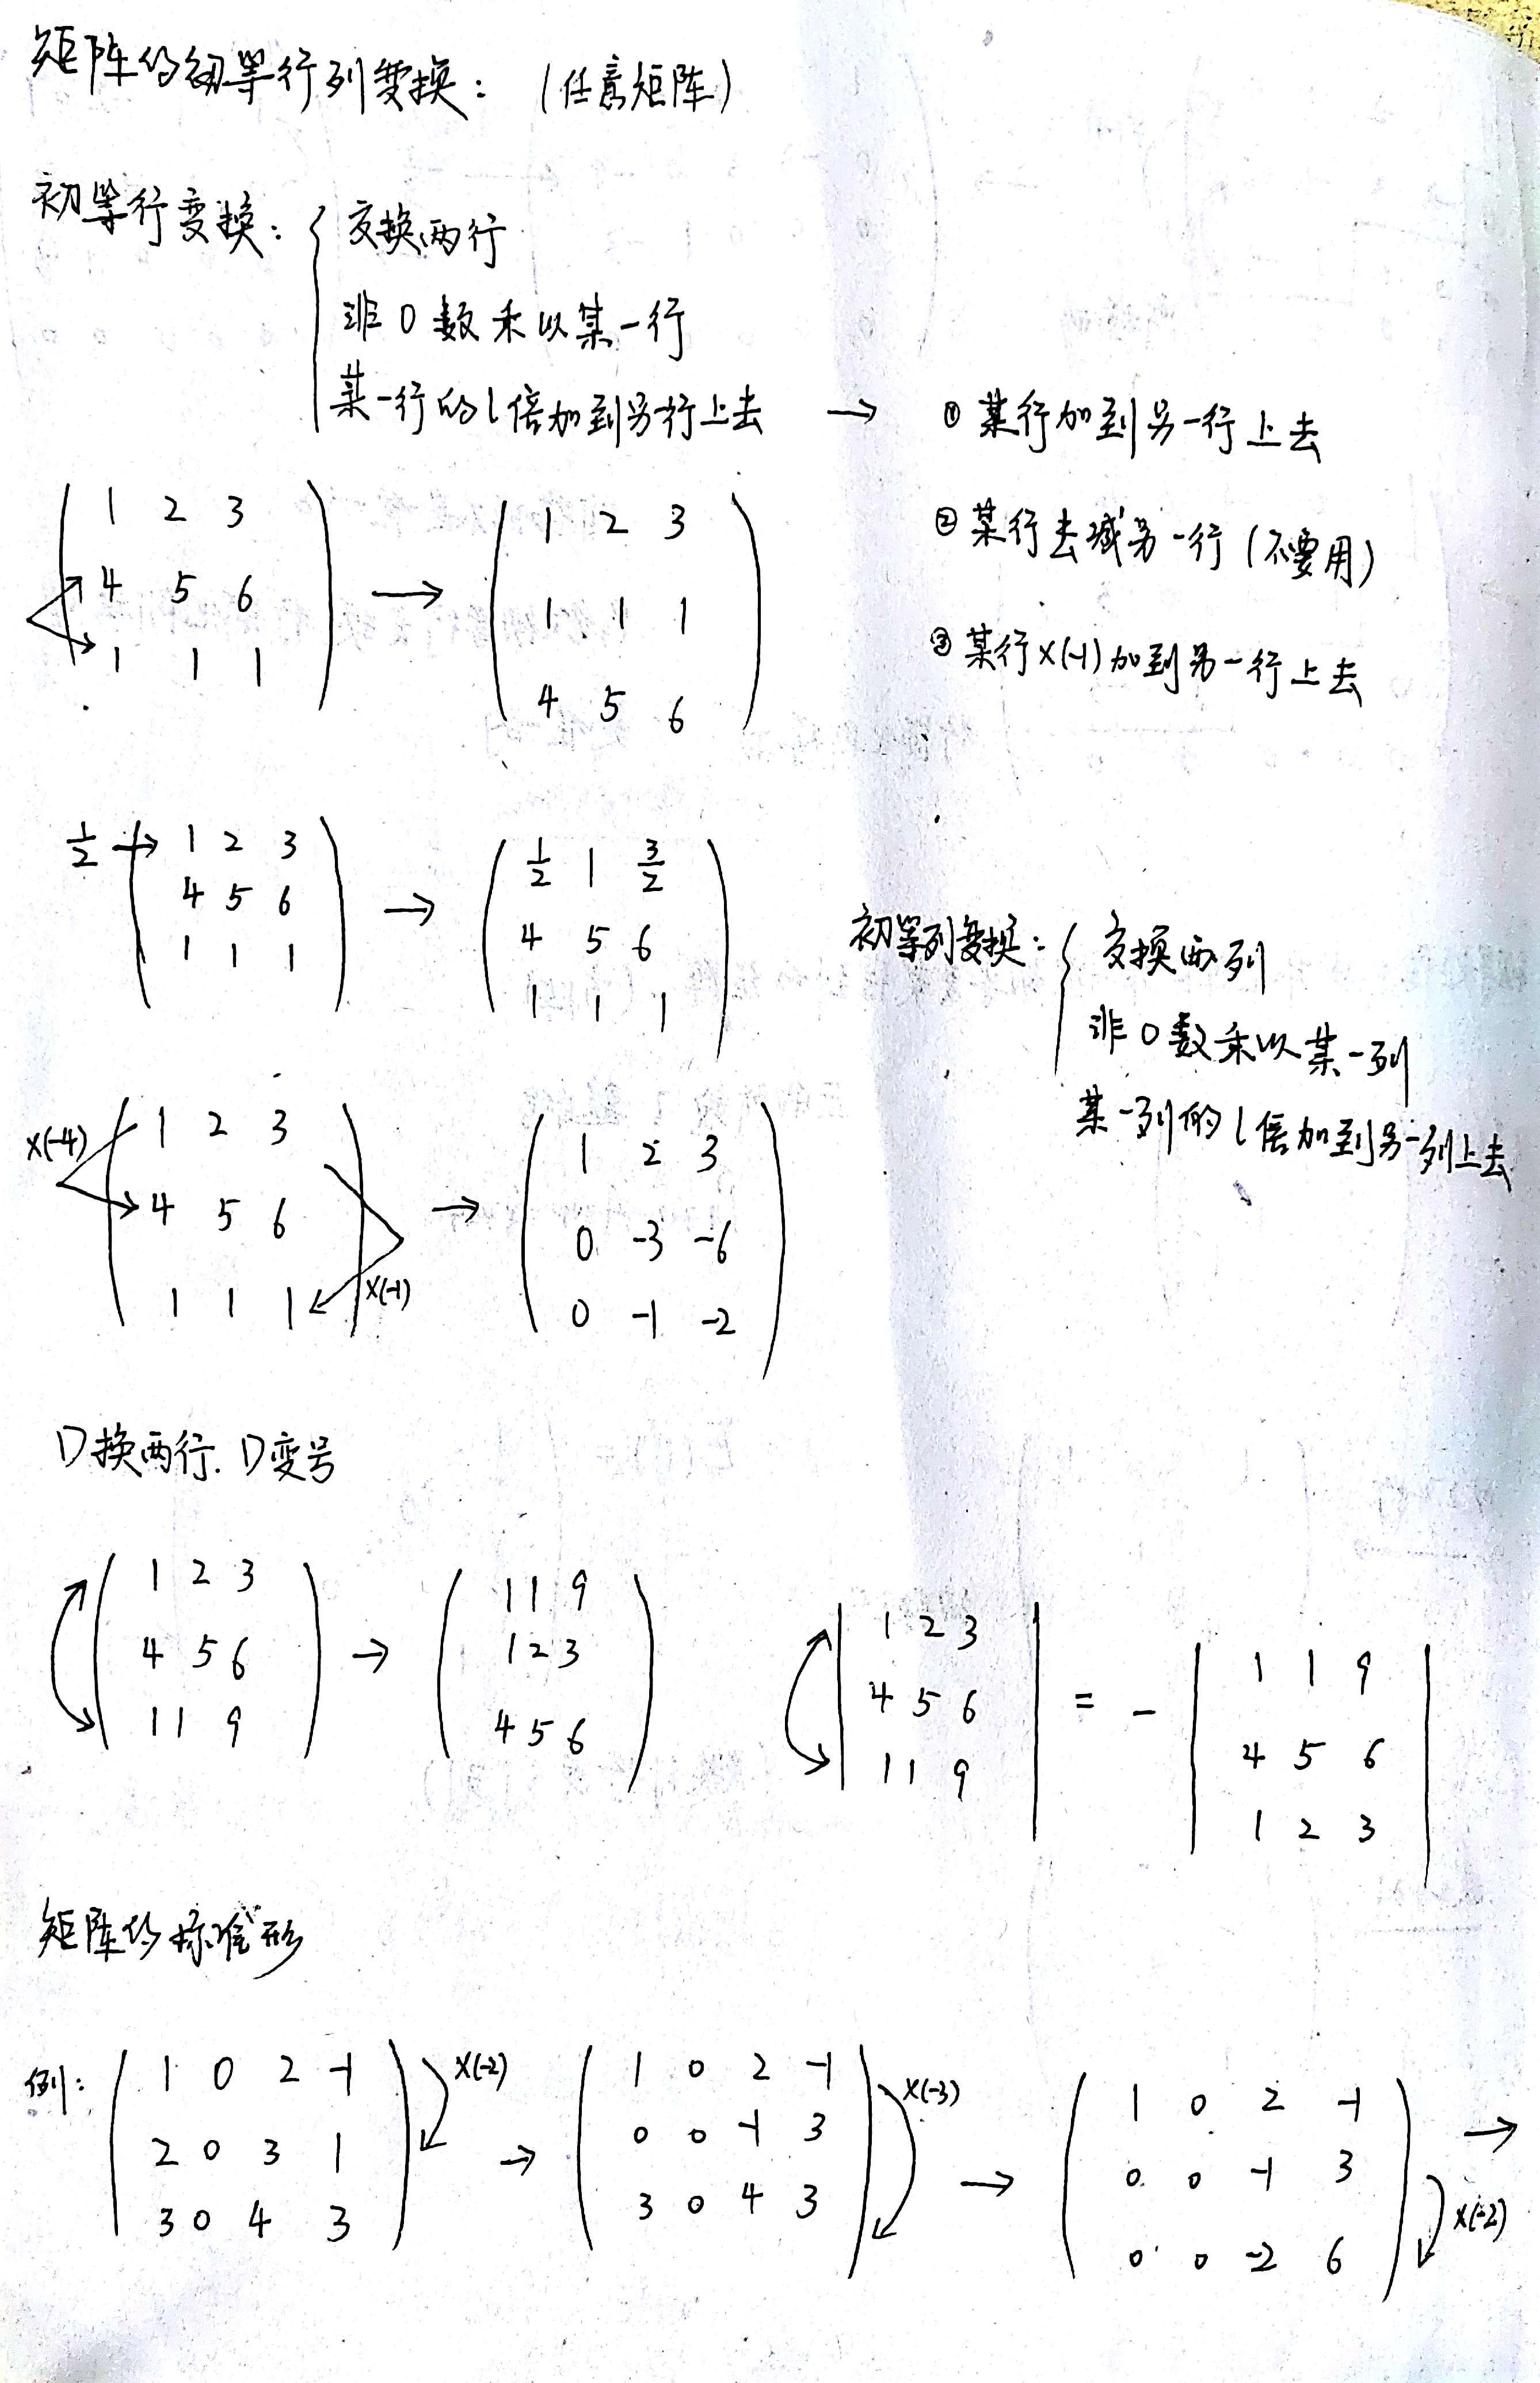 矩阵的初等行列变换：（任意矩阵）
初等行变换：{ 交换两行
非0数乘以某一行
某一行的l倍加到另行上去 → ① 某行加到另一行上去
② 某行去减另一行（不要用）
③ 某行×(-1)加到另一行上去
1 2 3
4 5 6
1 1 1
→
1 2 3
1 1 1
4 5 6
1/2 → 1 2 3
4 5 6
1 1 1
→
1/2 1 3/2
4 5 6
1 1 1
初等列变换：{ 交换两列
非0数乘以某一列
某一列的l倍加到另一列上去
×(-4)
1 2 3
4 5 6
1 1 1
×(-1)
→
1 2 3
0 -3 -6
0 -1 -2
D换两行. D变号
1 2 3
4 5 6
1 1 9
→
1 1 9
1 2 3
4 5 6
1 2 3
4 5 6
1 1 9
= -
1 1 9
4 5 6
1 2 3
矩阵的标准形
例：
1 0 2 -1
2 0 3 1
3 0 4 3
×(-2)
→
1 0 2 -1
0 0 -1 3
3 0 4 3
×(-3)
→
1 0 2 -1
0 0 -1 3
0 0 -2 6
×(-2)
→